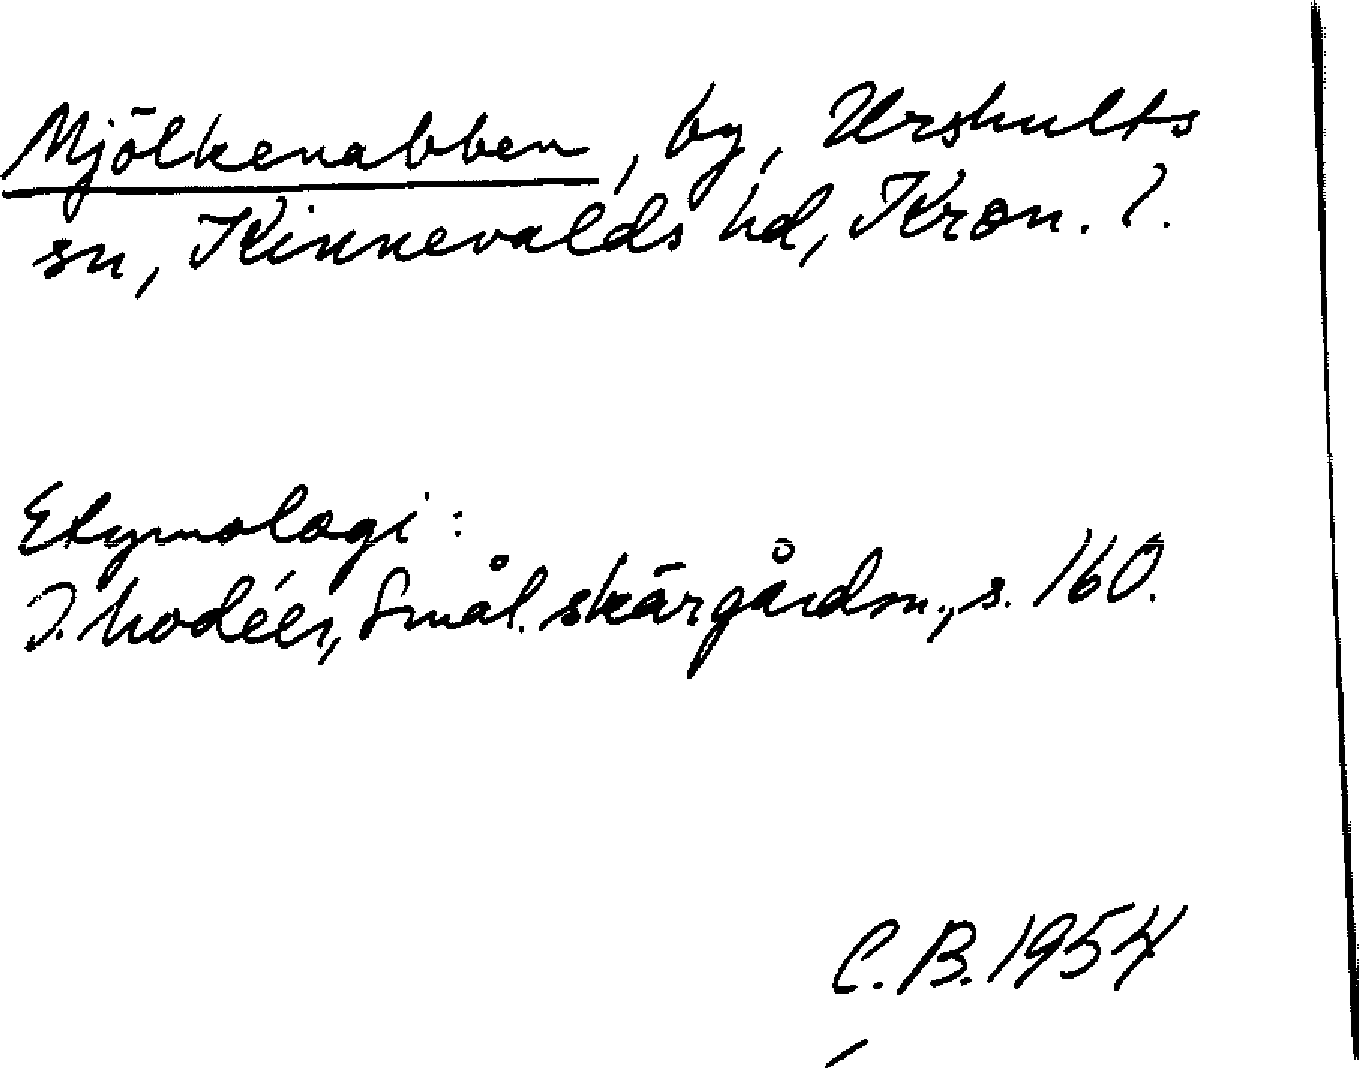 Mjölkenabben, by, Urshults
sn, Kinnevalds hd, Kron. l.
Etymologi:
I. Modéer, Smål. skärgårdsn., s. 160.
C.B. 1954